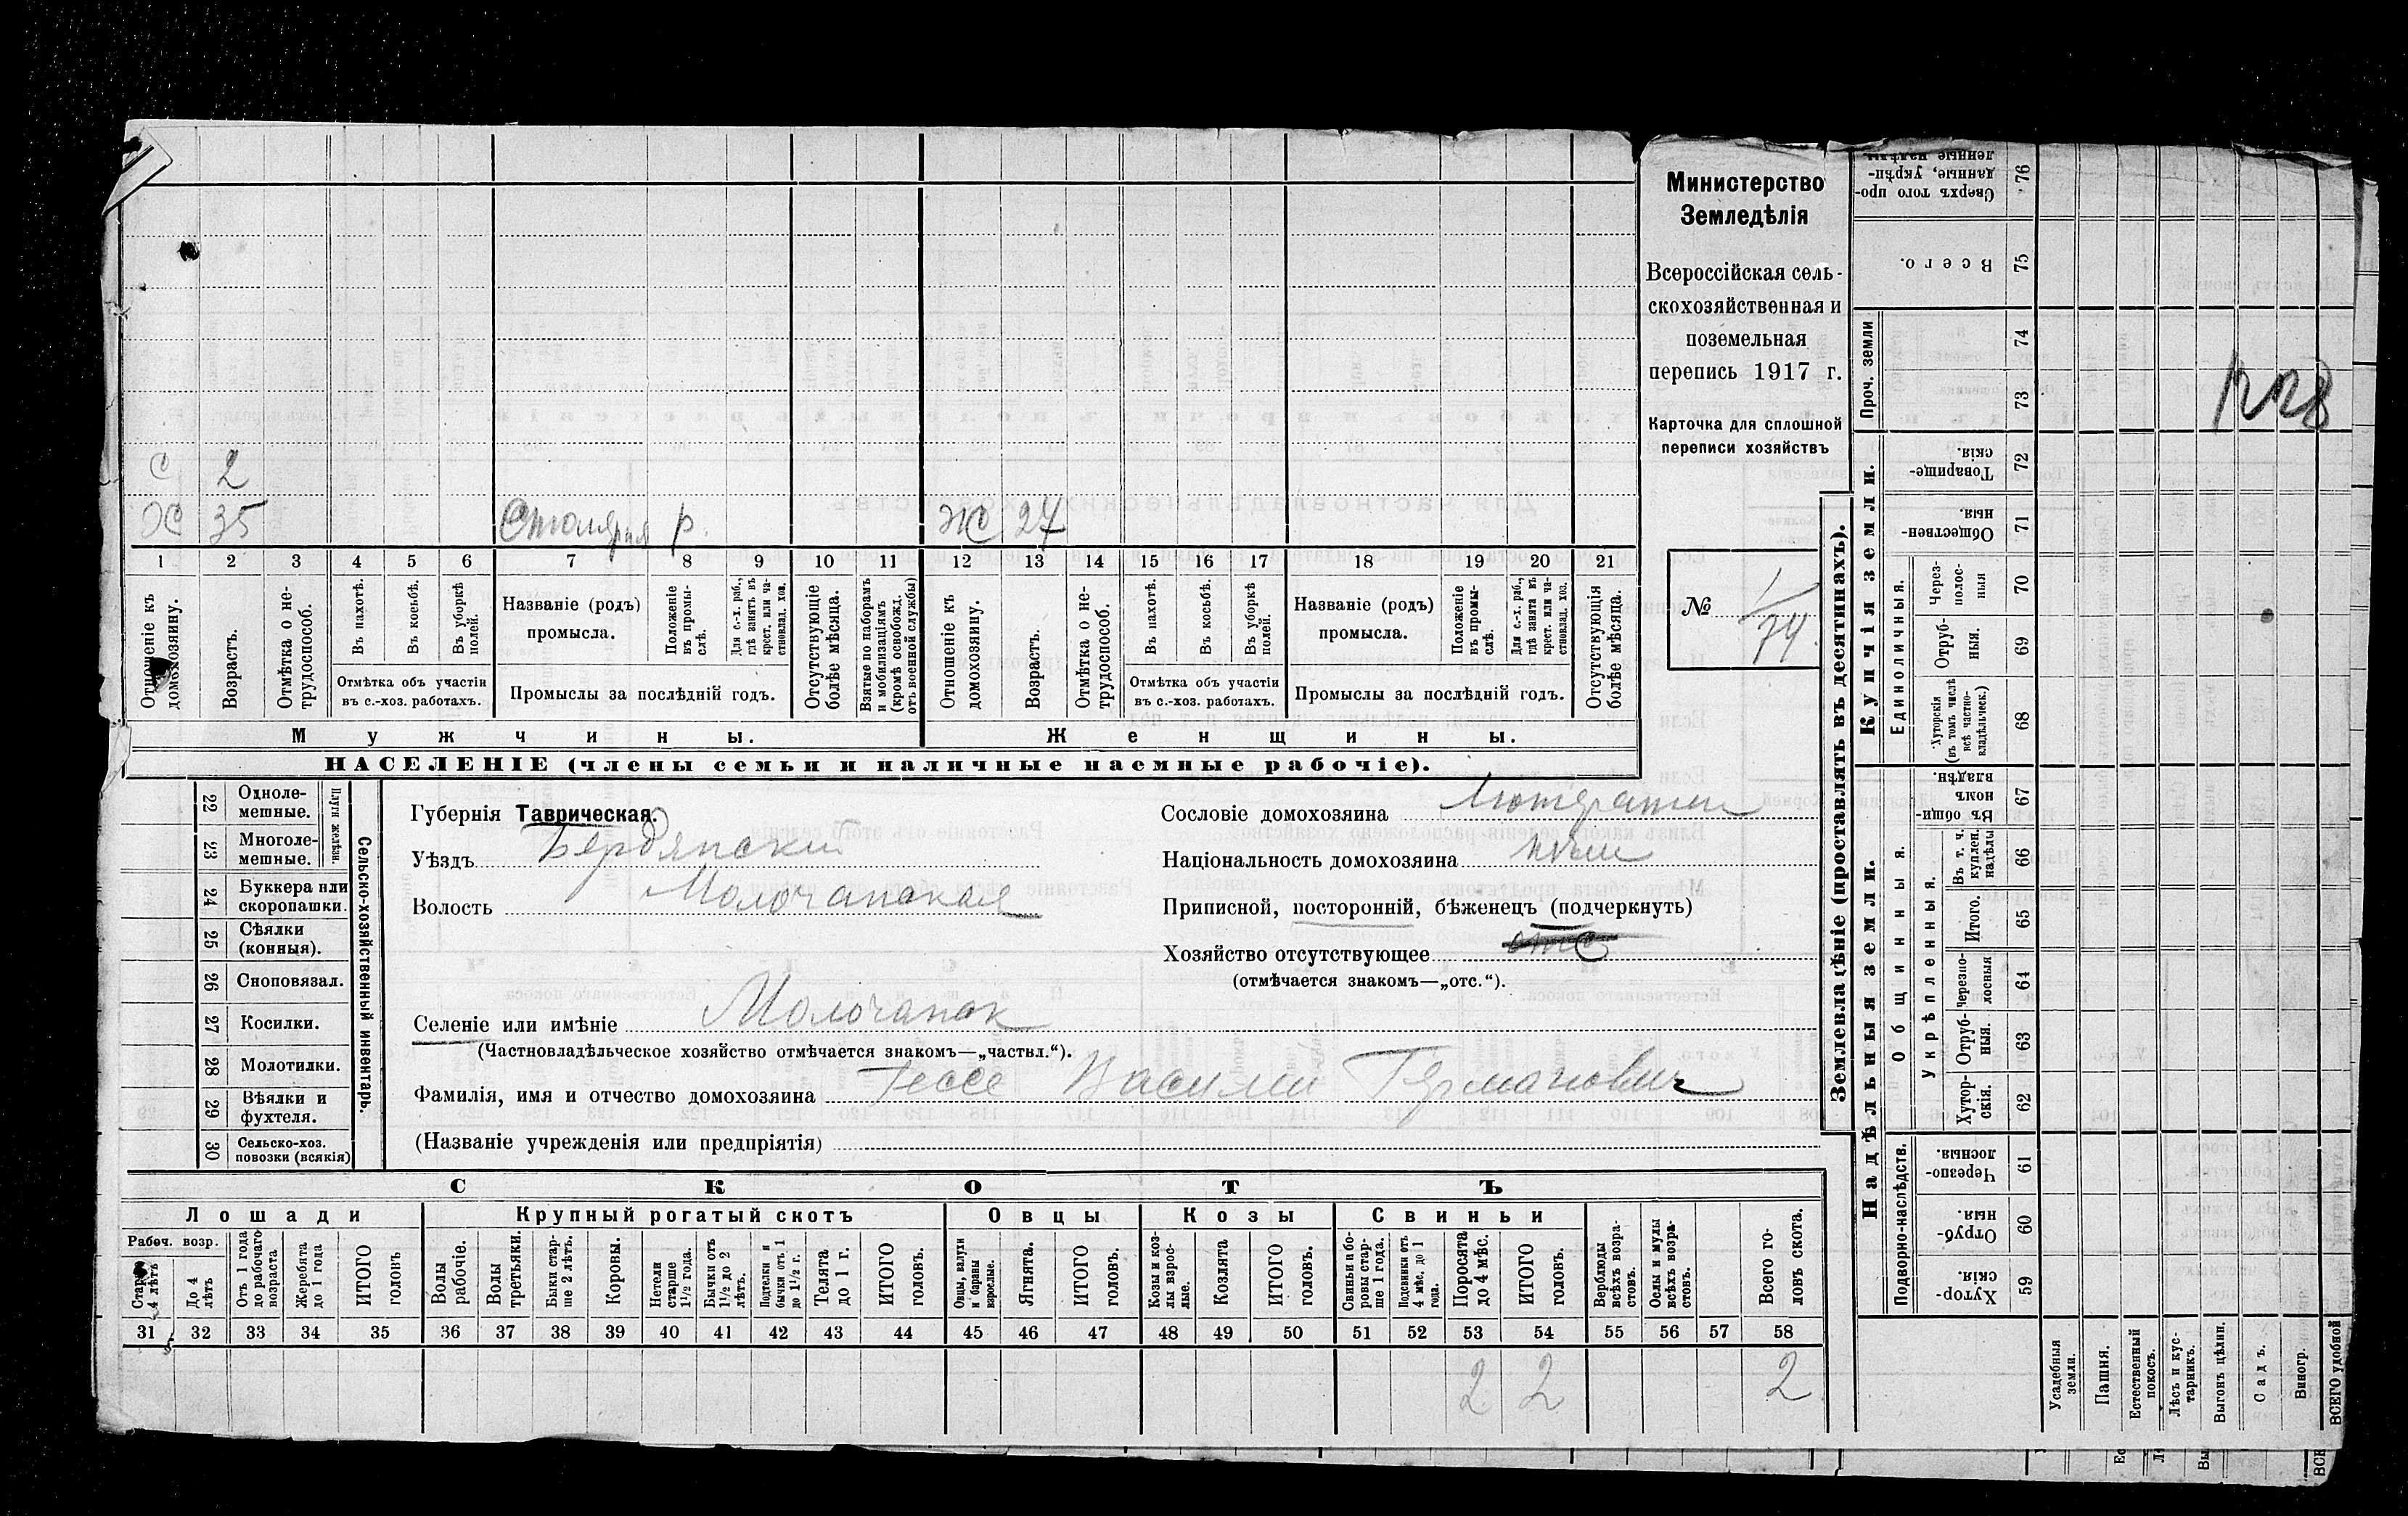 Министерство
Земледѣлія
Всероссійская сель-
скохозяйственная и
поземельная
перепись 1917 г.
Карточка для сплошной
переписи хозяйствъ
№ 1/74
с 2
Ж 35 Столярня р. Ж 27
1 2 3 4 5 6 7 8 9 10 11 12 13 14 15 16 17 18 19 20 21
Отношеніе къ домохозяину.
Возрастъ.
Отмѣтка о не-трудоспособ.
Въ пахотѣ.
Въ косьбѣ.
Въ уборкѣ полей.
Отмѣтка объ участіи
въ с.-хоз. работахъ.
Названіе (родъ)
промысла.
Положеніе въ промы-слѣ.
Для с.-х. раб., гдѣ занятъ въ крест. или ча-стновлад. хоз.
Промыслы за послѣдній годъ.
Отсутствующіе болѣе мѣсяца.
Взятые по наборамъ и мобилизаціямъ (кромѣ освобожд. отъ военной службы)
Отношеніе къ домохозяину.
Возрастъ.
Отмѣтка о не-трудоспособ.
Въ пахотѣ.
Въ косьбѣ.
Въ уборкѣ полей.
Отмѣтка объ участіи
въ с.-хоз. работахъ.
Названіе (родъ)
промысла.
Положеніе въ промы-слѣ.
Для с.-х. раб., гдѣ занята въ крест. или ча-стновлад. хоз.
Промыслы за послѣдній годъ.
Отсутствующія болѣе мѣсяца.
Мужчины.
Женщины.
НАСЕЛЕНІЕ (члены семьи и наличные наемные рабочіе).
22 Одноле-мешные.
23 Многоле-мешные.
Плуги желѣзн.
24 Буккера или скоропашки.
25 Сѣялки (конныя).
26 Сноповязал.
27 Косилки.
28 Молотилки.
29 Вѣялки и фухтеля.
30 Сельско-хоз. повозки (всякія)
Сельско-хозяйственный инвентарь.
Губернія Таврическая.
Уѣздъ Бердянский
Волость Молочанская
Селеніе или имѣніе Молочанск
(Частновладѣльческое хозяйство отмѣчается знакомъ—„частвл.“).
Фамилія, имя и отчество домохозяина Гессе Василий Германович
(Названіе учрежденія или предпріятія)
Сословіе домохозяина
Національность домохозяина
Приписной, посторонній, бѣженецъ (подчеркнуть)
Хозяйство отсутствующее отс
(отмѣчается знакомъ—„отс.“).
СКОТЪ
Лошади
Рабоч. возр.
До 4 лѣтъ
Отъ 1 года до рабочаго возраста
Жеребята до 1 года
ИТОГО головъ
Крупный рогатый скотъ
Волы рабочіе.
Волы третьяки.
Быки стар-ше 2 лѣтъ.
Коровы.
Нетели старше 1½ года.
Бычки отъ 1½ до 2 лѣтъ.
Подтелки и бычки отъ 1 до 1½ г.
Телята до 1 г.
ИТОГО головъ.
Овцы
Овцы, валухи и бараны взрослые.
Ягнята.
ИТОГО головъ.
Козы
Козы и коз-лы взрос-лые.
Козлята
ИТОГО головъ.
Свиньи
Свиньи и бо-ровы стар-ше 1 года.
Подсвинки отъ 4 мѣс. до 1 года.
Поросята до 4 мѣс.
ИТОГО головъ.
Верблюды всѣхъ возра-стовъ.
Ослы и мулы всѣхъ возра-стовъ.
Всего го-ловъ скота.
31 32 33 34 35 36 37 38 39 40 41 42 43 44 45 46 47 48 49 50 51 52 53 54 55 56 57 58
2 2 2
Землевладѣніе (проставлять въ десятинахъ).
Купчія земли.
Надѣльныя земли.
Проч. земли
Единоличныя.
Общинныя.
Укрѣпленныя.
Подворно-наслѣдств.
76 Сверхъ того про-данные, укрѣп-ленные
75 Всего.
74
73
72 Товарище-скія.
71 Обществен-ныя.
70 Через-полос-ныя
69 Отруб-ныя.
68 Хуторскія (въ томъ числѣ всѣ частно-владѣльческ.)
67 Въ общин-номъ владѣн.
66 Въ т. ч. куплен. надѣлы
65 Итого.
64 Черезпо-лосныя
63 Отруб-ныя.
62 Хутор-скія.
61 Черезпо-лосныя.
60 Отруб-ныя.
59 Хутор-скія.
Усадебныя земли.
Пашня.
Естественный покосъ.
Лѣсъ и кус-тарникъ.
Выгонъ цѣлин.
Садъ.
Виногр.
ВСЕГО удобной